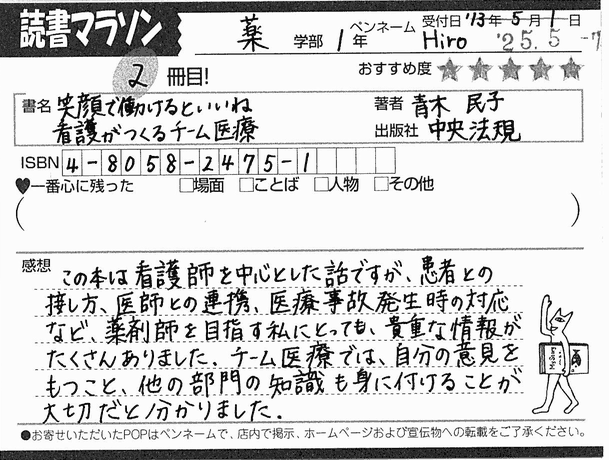 読書マラソン
薬 学部 1年
ペンネーム Hiro
受付日 '13年5月1日
'25.5.-7
2冊目!
おすすめ度 ★★★★★
書名 笑顔で働けるといいね
看護がつくるチーム医療
著者 青木 民子
出版社 中央法規
ISBN 4-8058-2475-1
♥一番心に残った □場面 □ことば □人物 □その他
( )
感想
この本は看護師を中心とした話ですが、患者との
接し方、医師との連携、医療事故発生時の対応
など、薬剤師を目指す私にとっても、貴重な情報が
たくさんありました。チーム医療では、自分の意見を
もつこと、他の部門の知識も身に付けることが
大切だと分かりました。
●お寄せいただいたPOPはペンネームで、店内で掲示、ホームページおよび宣伝物への転載をご了承ください。